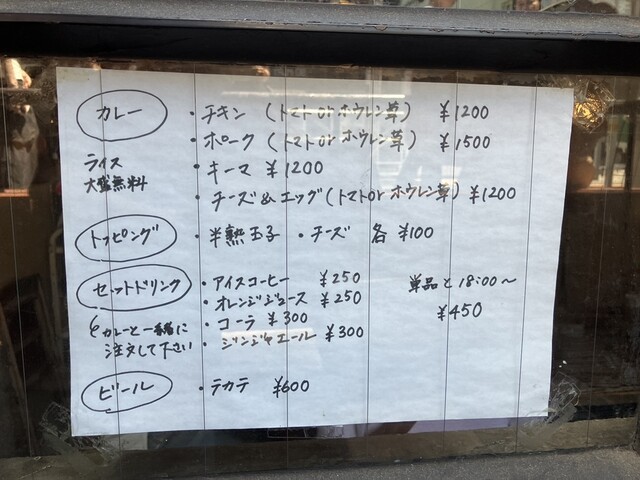 カレー ・チキン (トマト or ホウレン草) ¥1200
・ポーク (トマト or ホウレン草) ¥1500
ライス ・キーマ ¥1200
大盛無料
・チーズ&エッグ(トマト or ホウレン草) ¥1200
トッピング ・半熟玉子 ・チーズ 各 ¥100
セットドリンク ・アイスコーヒー ¥250 単品と18:00〜
・オレンジジュース ¥250 ¥450
カレーと一緒に ・コーラ ¥300
注文して下さい ・ジンジャエール ¥300
ビール ・テカテ ¥600